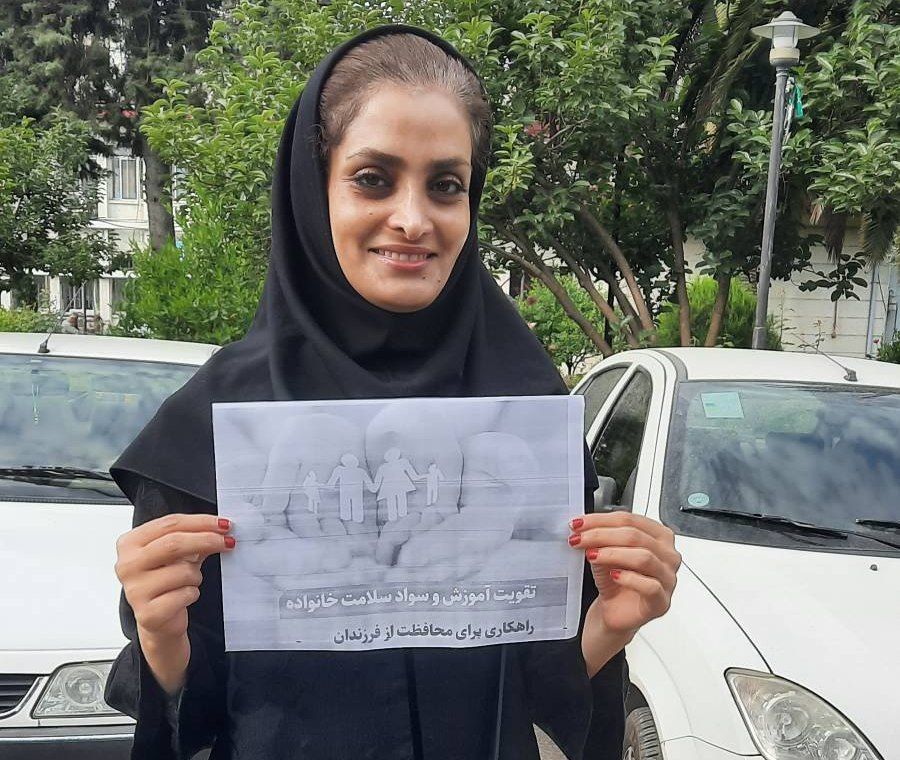 تقویت آموزش و سواد سلامت خانواده
راهکاری برای محافظت از فرزندان